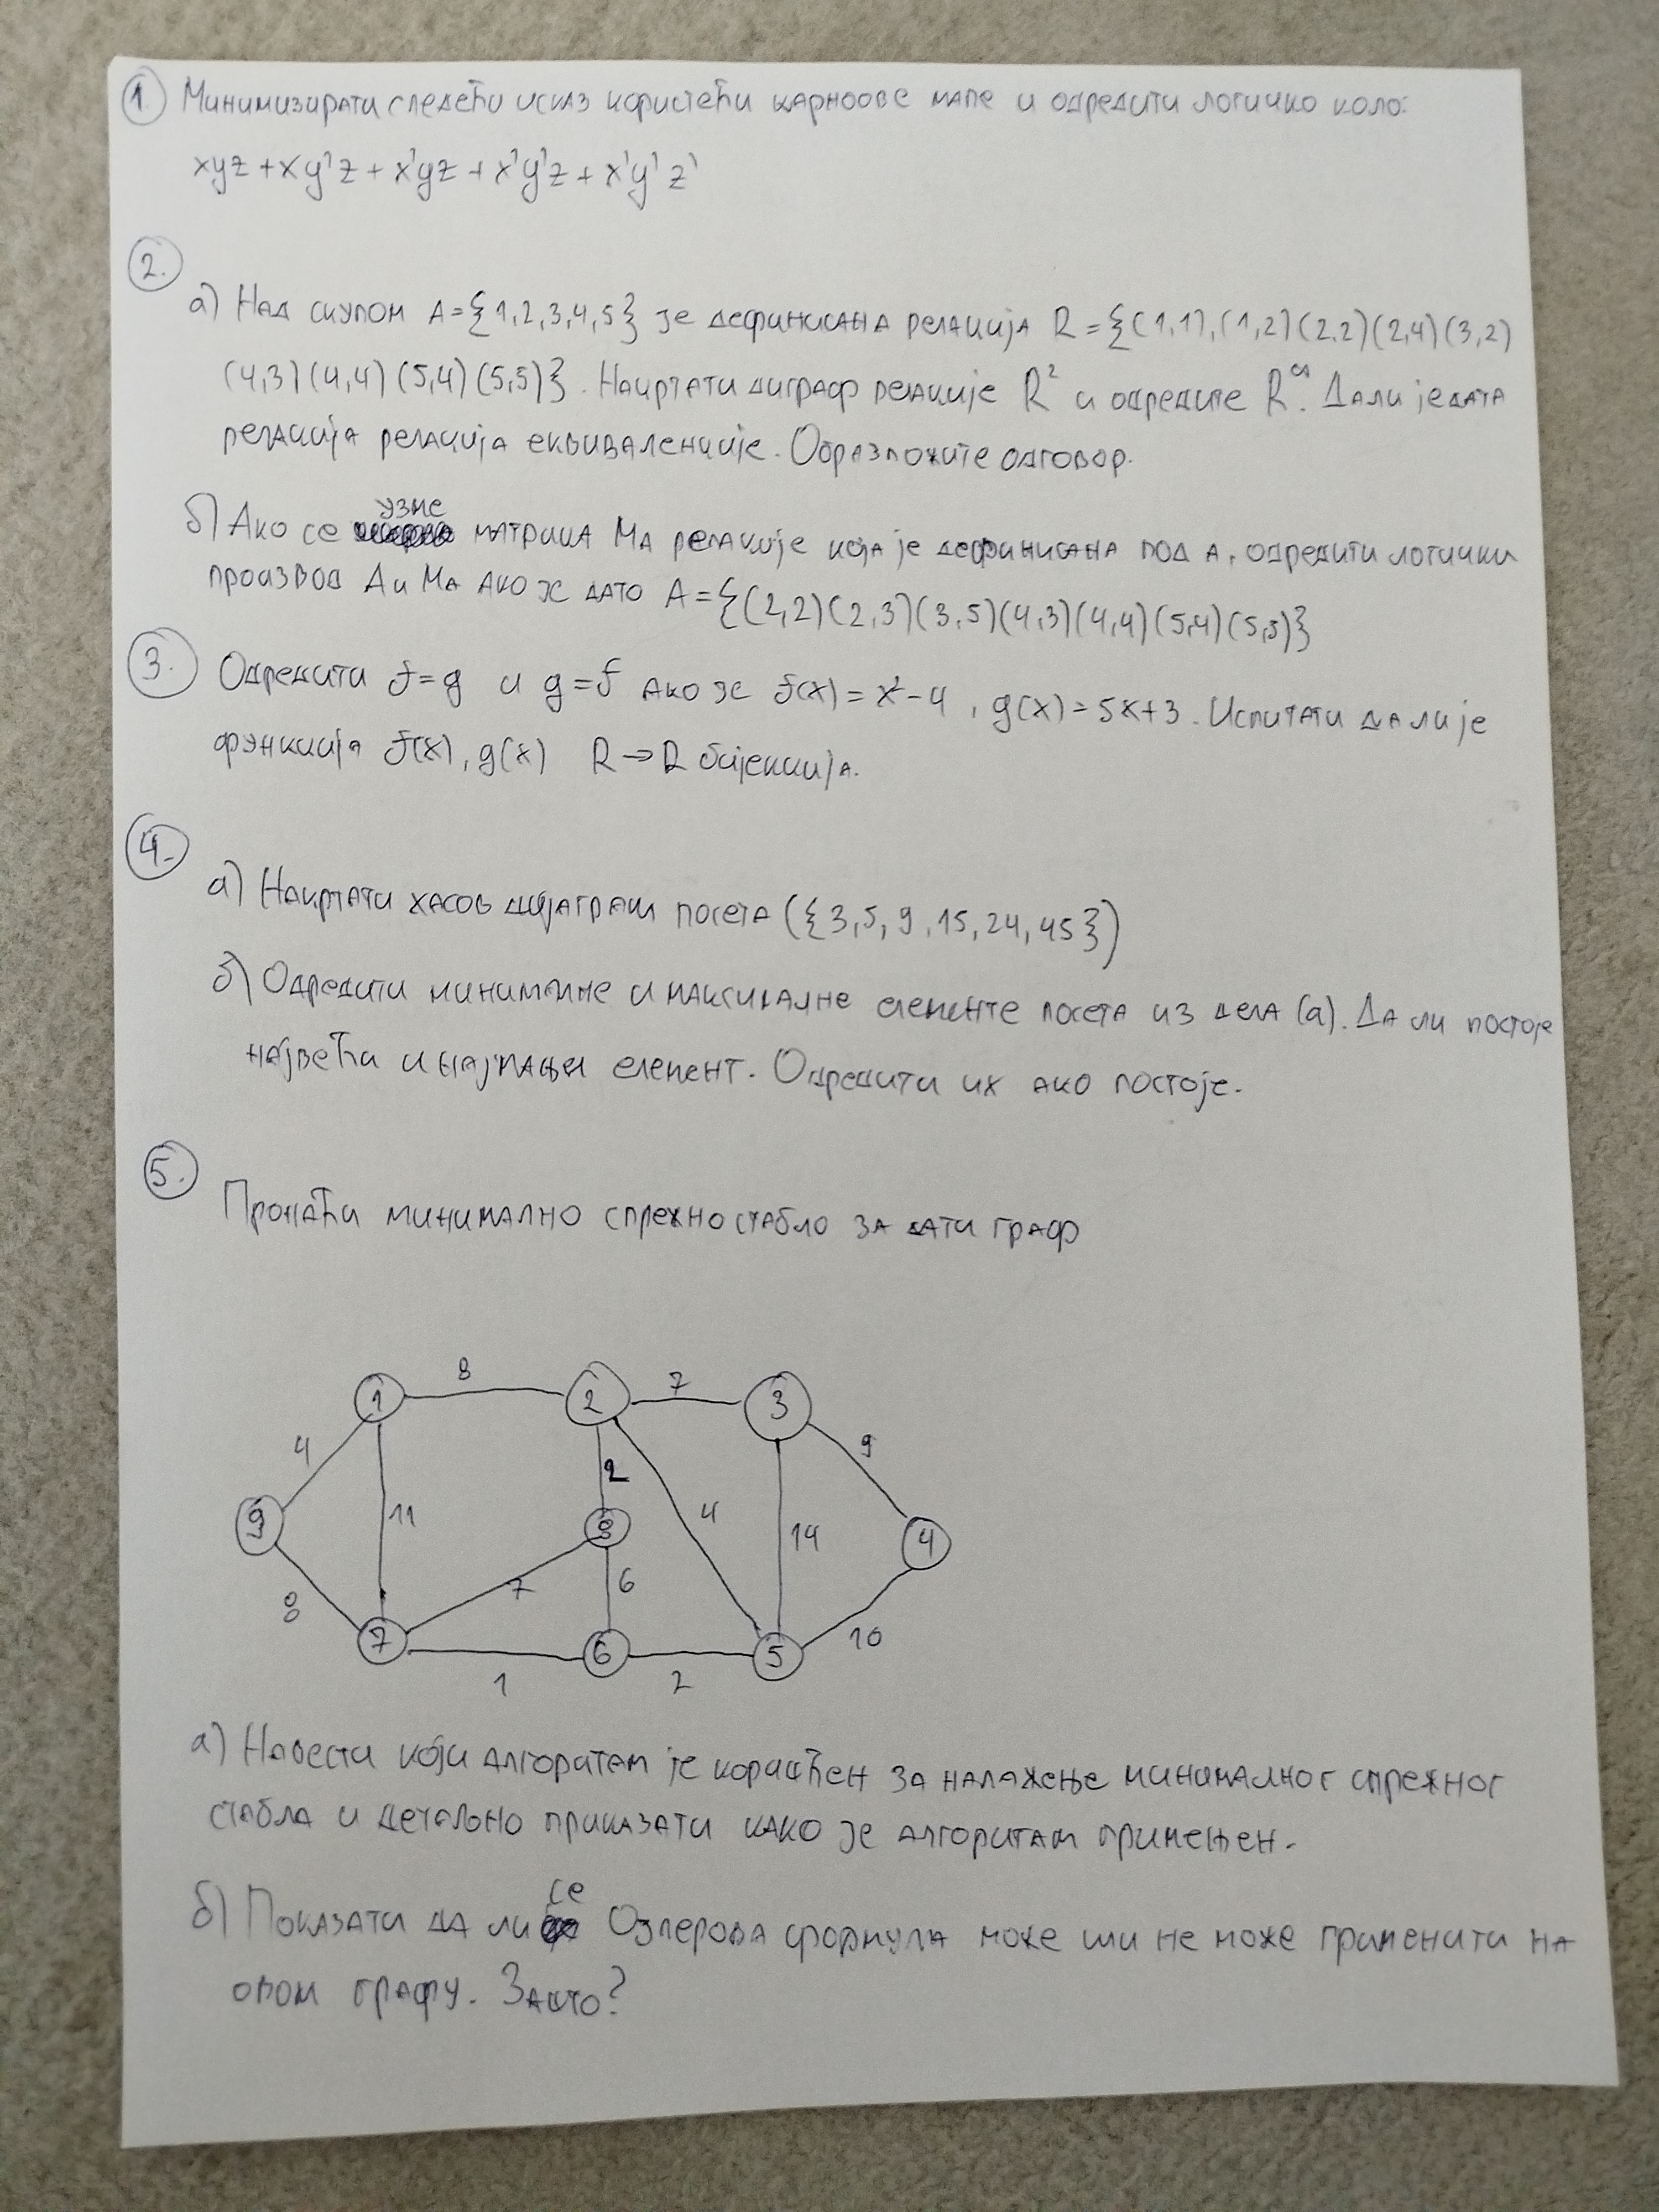 1. Минимизирати следећи исказ користећи карноове мапе и одредити логичко коло:
xyz + xy'z + x'yz + x'y'z + x'y'z'
2.
а) Над скупом A={1,2,3,4,5} је дефинисана релација R={(1,1),(1,2)(2,2)(2,4)(3,2)
(4,3)(4,4)(5,4)(5,5)}. Нацртати диграф релације R² и одредите R . Дали једата
релација релација еквиваленције. Образложите одговор.
б) Ако се узме матрица MA релације која је дефинисана под A, одредити логички
производ А и MA ако је дато A={(2,2)(2,3)(3,5)(4,3)(4,4)(5,4)(5,5)}
3. Одредити f=g и g=f ако је f(x)=x²-4, g(x)=5x+3. Испитати да ли је
функција f(x), g(x) R→R бијекција.
4.
а) Нацртати хасов дијаграм посета ({3,5,9,15,24,45})
б) Одредити минималне и максималне елементе посета из дела (а). Да ли постоје
највећи и најмањи елемент. Одредити их ако постоје.
5.
Пронаћи минимално спрежно стабло за дати граф
8 7
1 2 3
4 9
2
9 11 8 4 14 4
7 6
8 10
7 6 5
1 2
а) Навести који алгоритам је коришћен за налажење минималног спрежног
стабла и детаљно приказати како је алгоритам примењен.
б) Показати да ли се Ојлерова формула може или не може применити на
овом графу. Зашто?